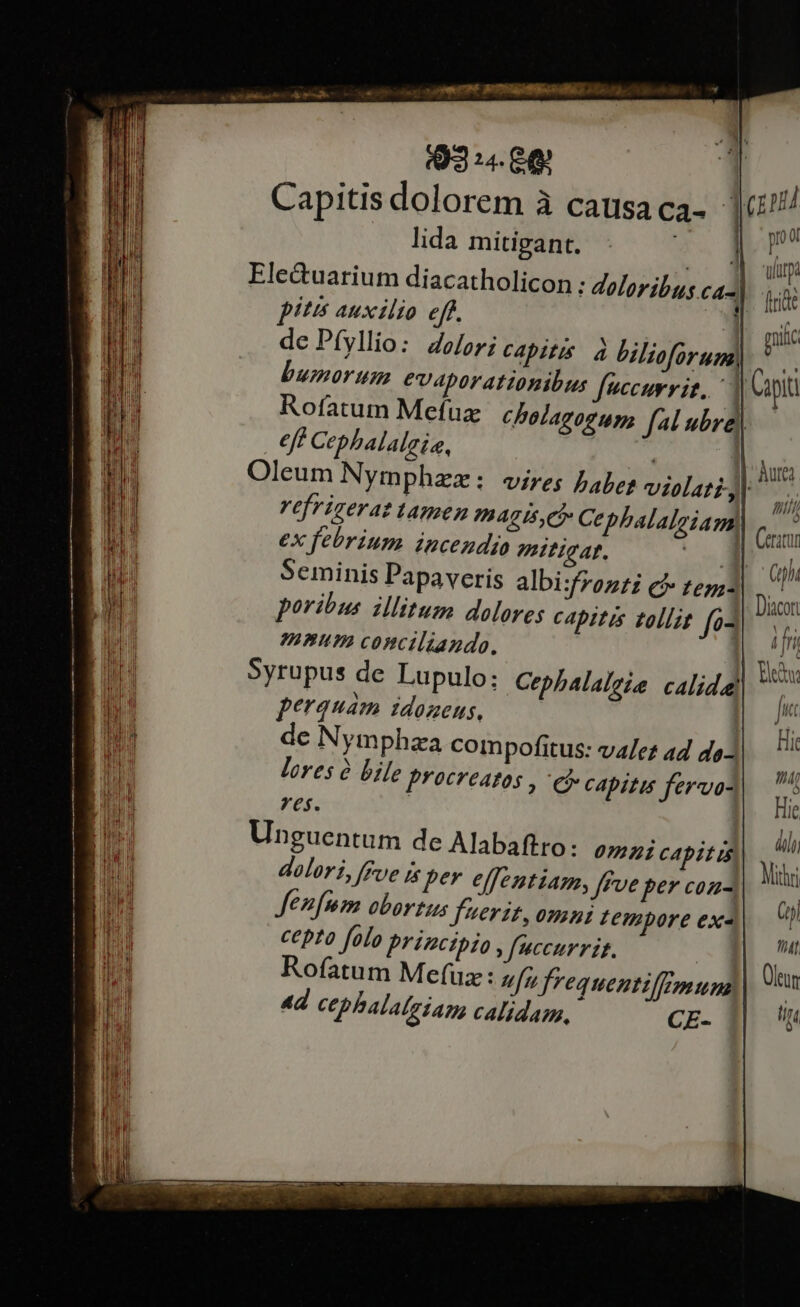 24.
Capitis dolorem à causa ca-
lida mitigant.
Electuarium diacatholicon: doloribus ca-
pitis auxilio eſt.
de Pſyllio: dolori capitis à bilioſorum
humorum evaporationibus ſuccurrit.
Roſatum Meſuæ cholagogum ſalubre
eſt Cephalalgiæ.
Oleum Nymphææ: vires habet violati,
refrigerat tamen magis, & Cephalalgiam
ex febrium incendio mitigat.
Seminis Papaveris albi: fronti & tem-
poribus illitum dolores capitis tollit ſo-
mnum conciliando.
Syrupus de Lupulo: Cephalalgiæ calidæ
perquàm idoneus.
de Nymphæa compoſitus: valet ad do-
lores è bile procreatos, & capitis fervo-
res.
Unguentum de Alabaſtro: omni capitis
dolori, ſive is per eſſentiam, ſive per con-
ſenſum obortus fuerit, omni tempore ex-
cepto ſolo principio, ſuccurrit.
Roſatum Meſuæ: uſu frequentiſſimum
ad cephalalgiam calidam.
CE-
Capiti
Aurea
Ceratum
Hie
Hie